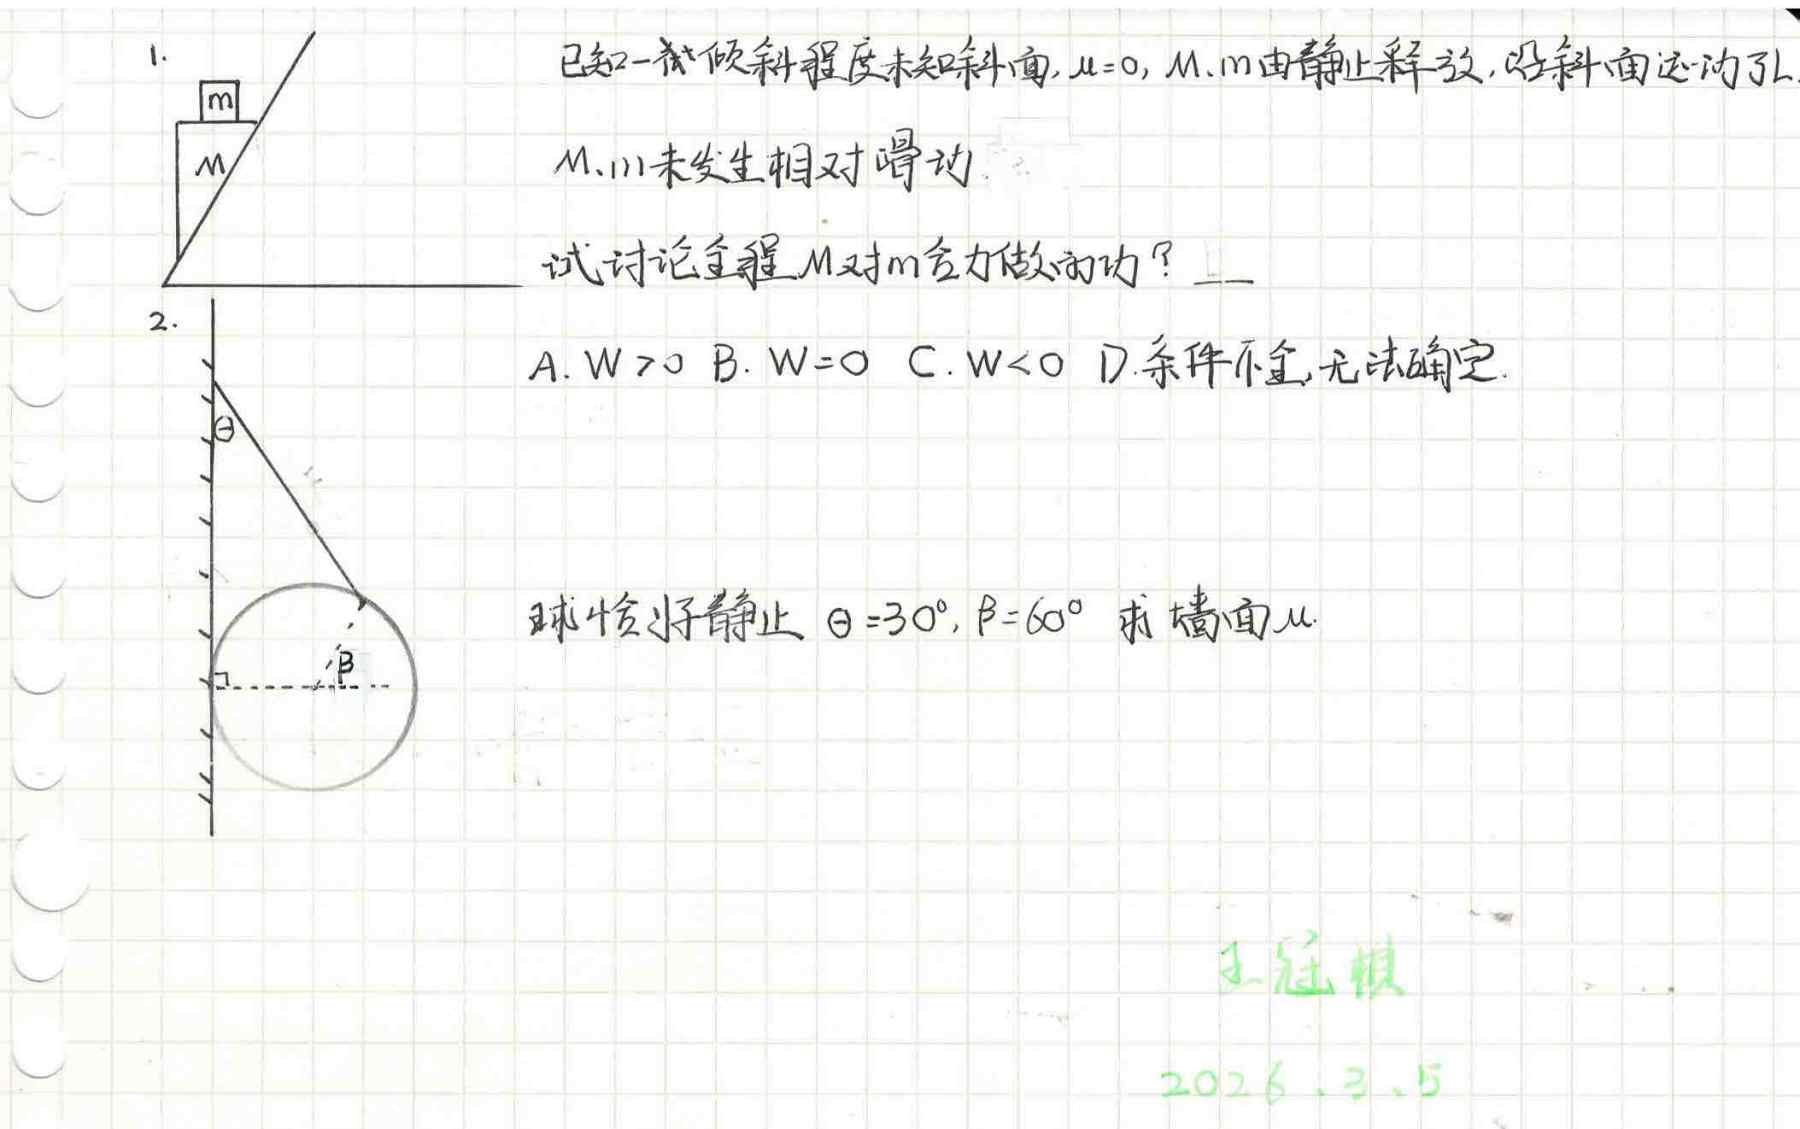 1.
已知一 倾斜程度未知斜面, μ=0, M.m由静止释放,沿斜面运动了L.
m
M
M.m未发生相对滑动.
试讨论全程M对m合力做的功? __
2.
A. W>0 B. W=0 C. W<0 D.条件不全,无法确定.
θ
球恰好静止 θ=30°, β=60° 求墙面μ.
β
王冠棋
2026.3.5